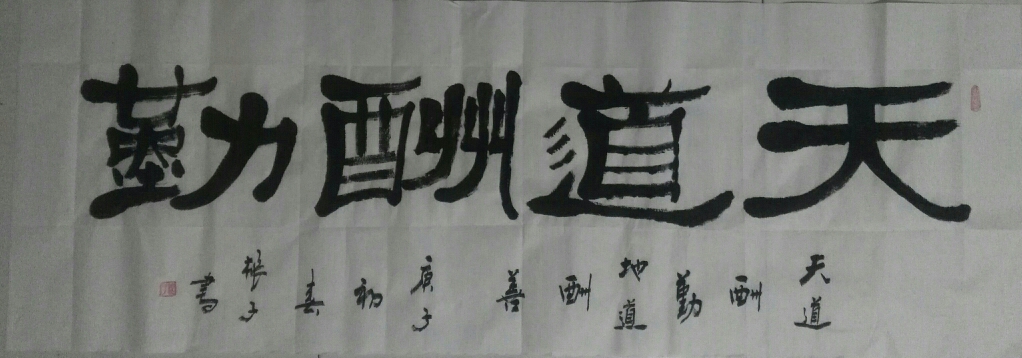 天道酬勤
天道酬勤 地道酬善 庚子初春 子書